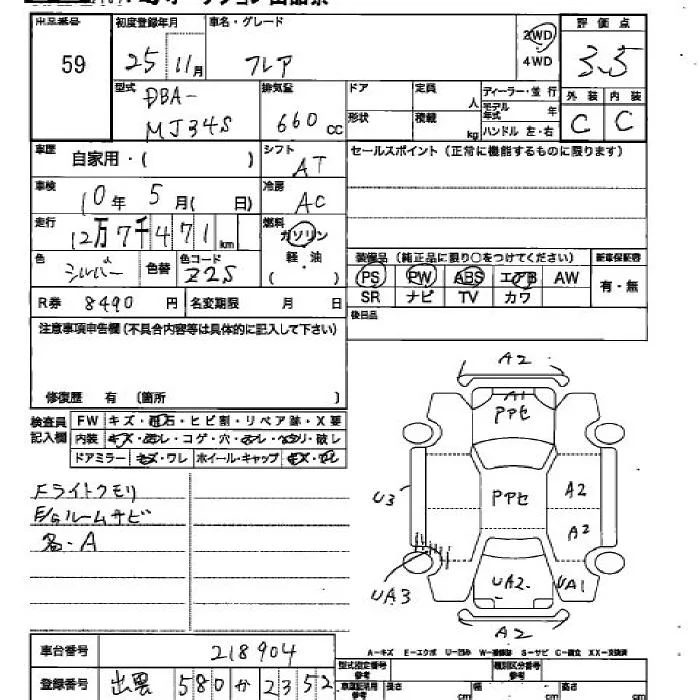 出品番号 初度登録年月 車名・グレード 2WD 評価点
59 25年 11月 フレア 4WD 3.5
型式 排気量 ドア 定員 人 ディーラー・並行 外装 内装
DBA- モデル年式 年
MJ34S 660 cc 形状 積載 kg ハンドル 左・右 C C
車歴 自家用・( ) シフト AT セールスポイント(正常に機能するものに限ります)
車検 10年 5月( 日) 冷房 AC
走行 12万7千471km 燃料 ガソリン
色 シルバー 色替 色コード Z2S 軽・油 ( ) 装備品(純正品に限り○をつけてください) 新車保証書
PS PW ABS エアB AW 有・無
R券 8490円 名変期限 月 日 SR ナビ TV カワ
後日品
注意事項申告欄(不具合内容等は具体的に記入して下さい)
修復歴 有 (箇所 )
検査員記入欄 FW キズ・飛石・ヒビ割・リペア跡・X要
内装 キズ・ヨゴレ・コゲ・穴・ヌレ・ヘタリ・破レ
ドアミラー キズ・ワレ ホイール・キャップ キズ・ワレ
A2
A1
Pアセ
Fライトクモリ
U3 Pアセ A2
E/Gルームサビ
A2
各-A
UA3 UA2 UA1
A2
車台番号 218904
A-キズ E-エクボ U-凹み W-補修跡 S-サビ C-腐食 XX-交換済
型式指定番号 類別区分番号
登録番号 出雲 580 か 2352 長さ cm 幅 cm 高さ cm